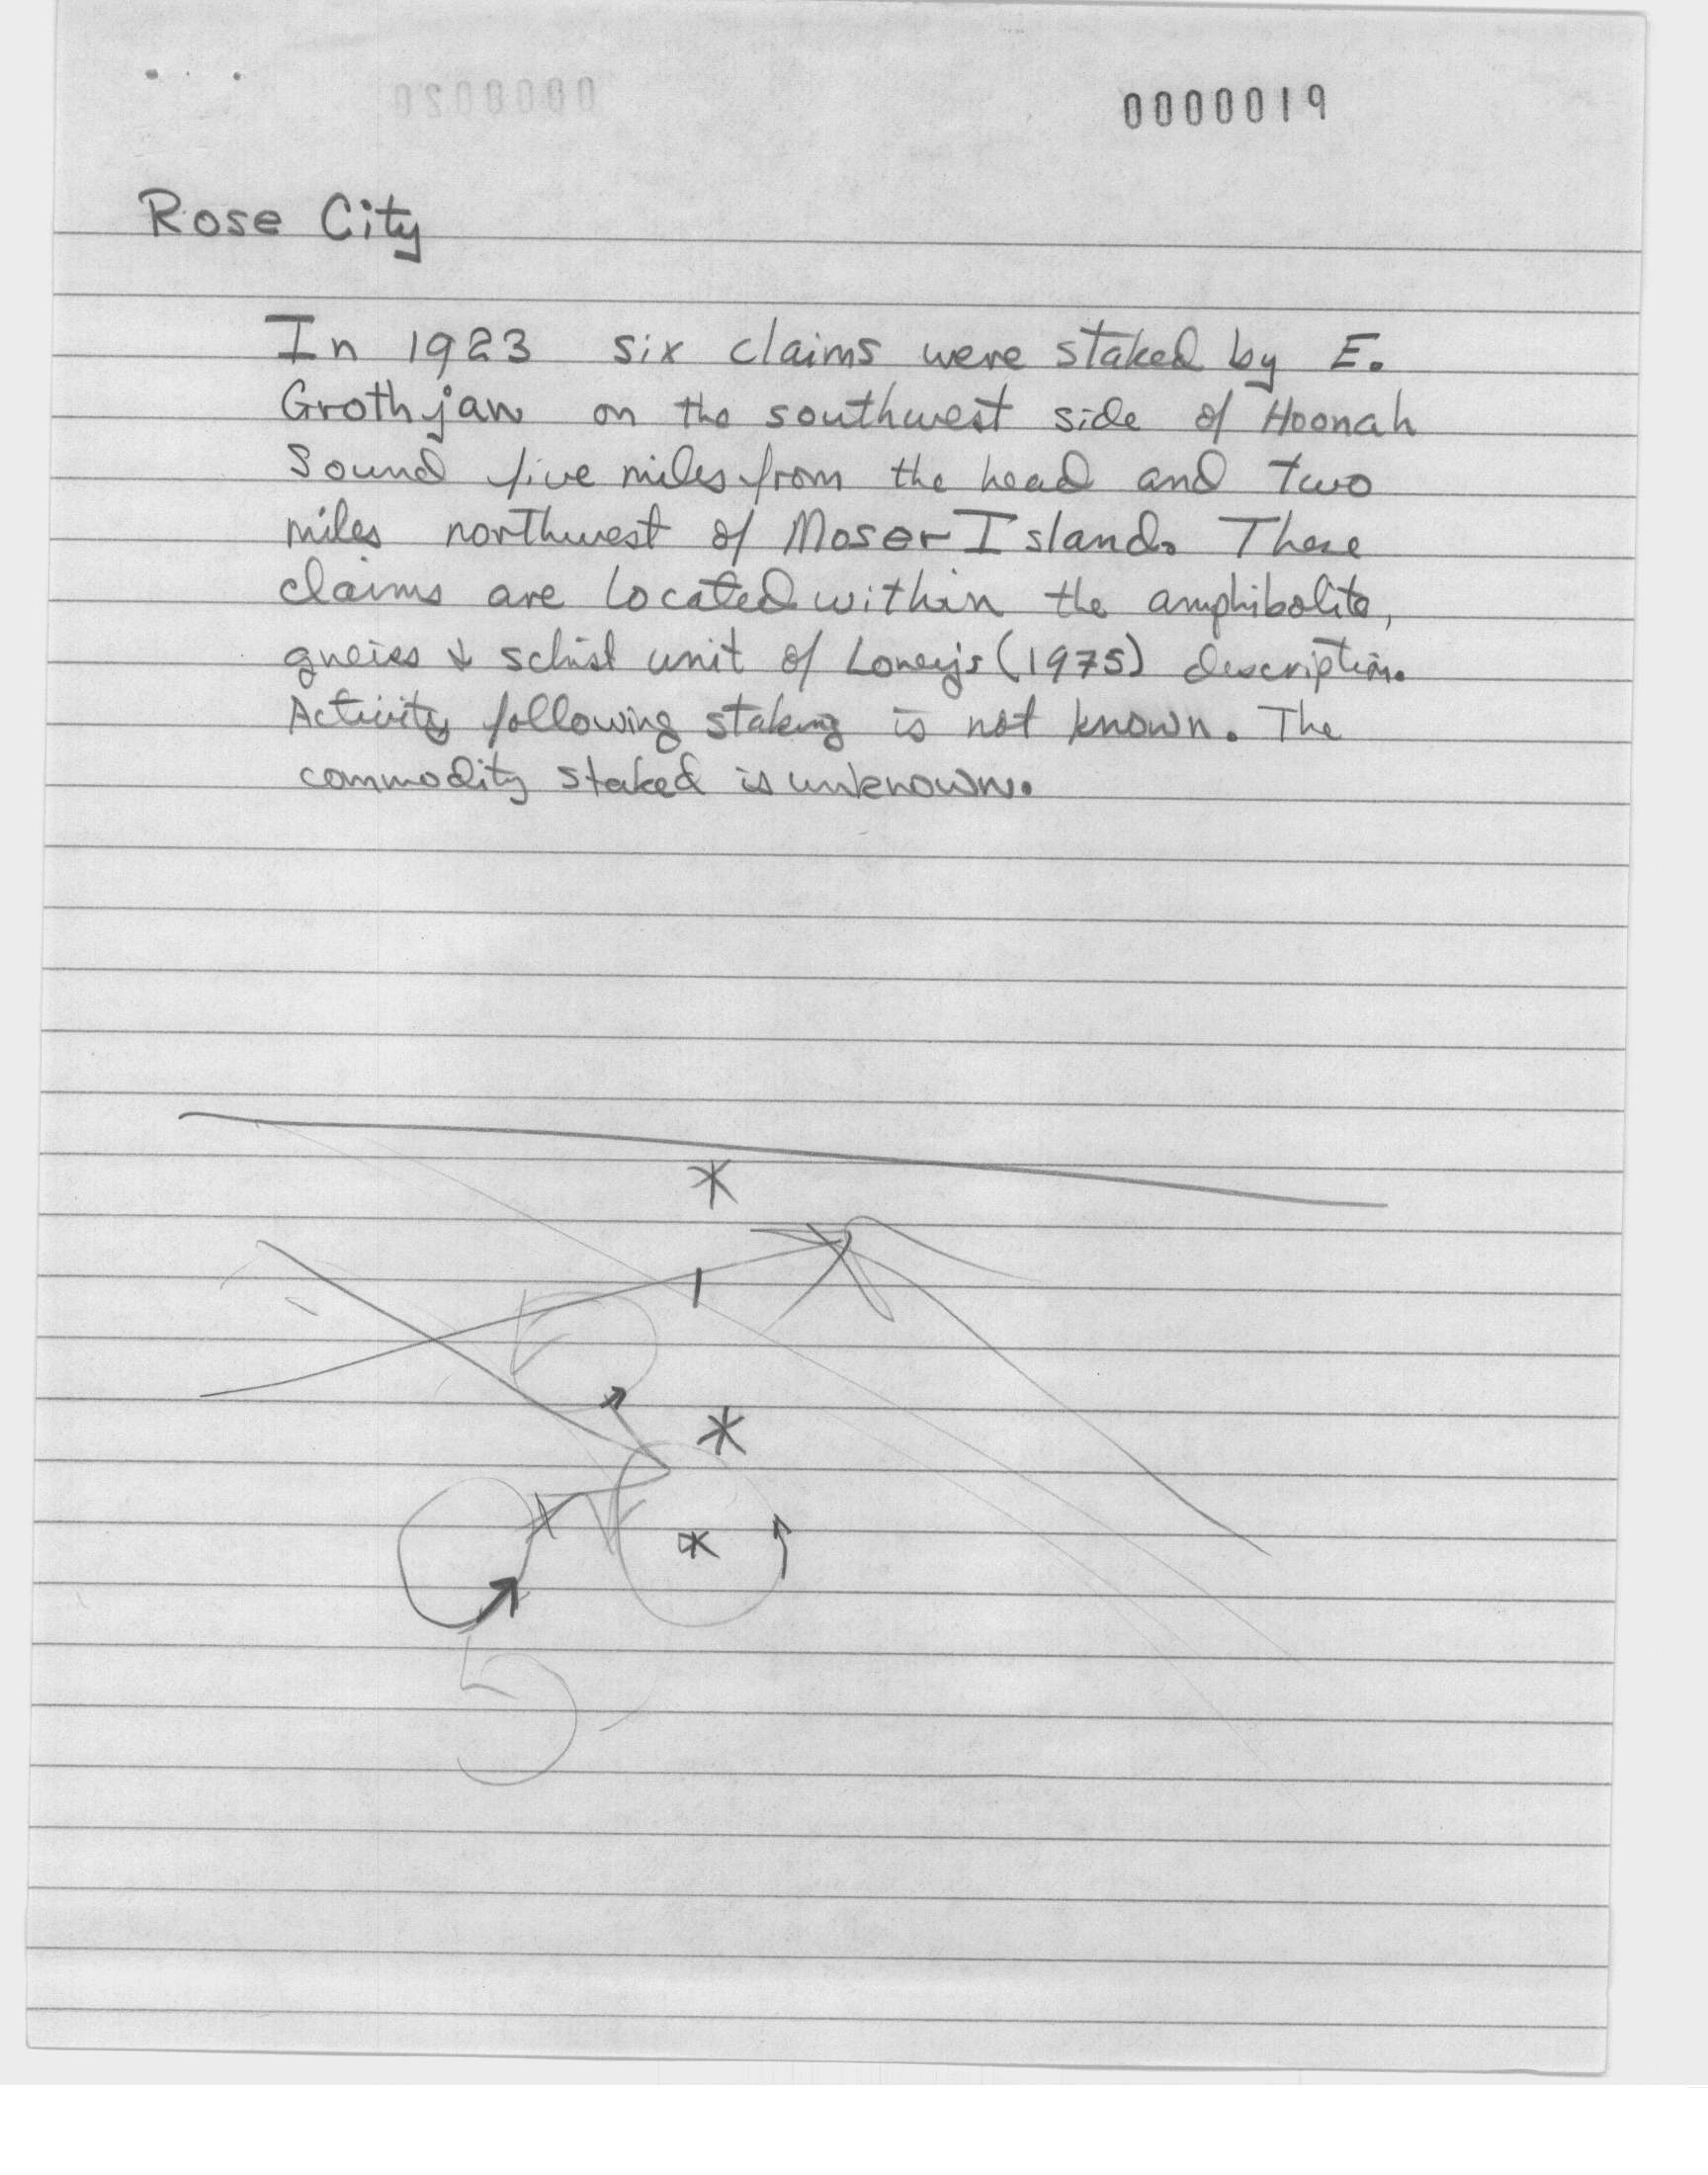 0000020
0000019
Rose City
In 1923 six claims were staked by E.
Grothjan on the southwest side of Hoonah
Sound five miles from the head and two
miles northwest of Moser Island. These
claims are located within the amphibolite,
gneiss & schist unit of Loney's (1975) description.
Activity following staking is not known. The
commodity staked is unknown.